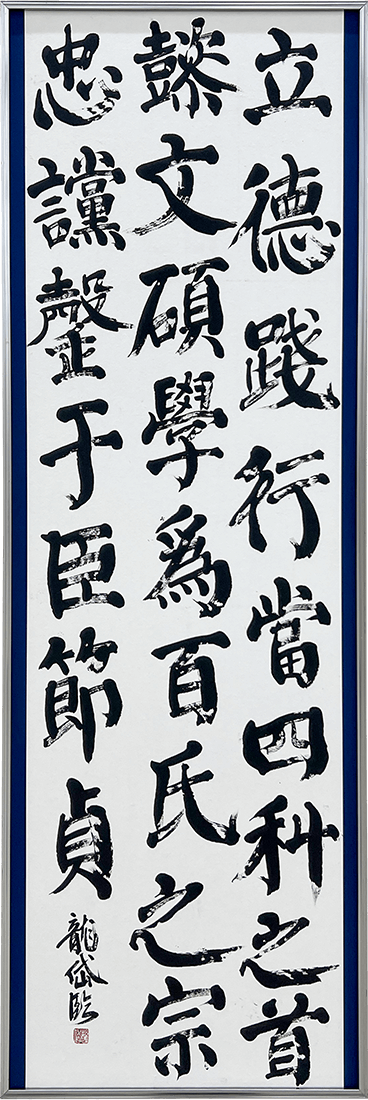 立德踐行當四科之首
懿文碩學為百氏之宗
忠讜罄于臣節貞
龍岱臨